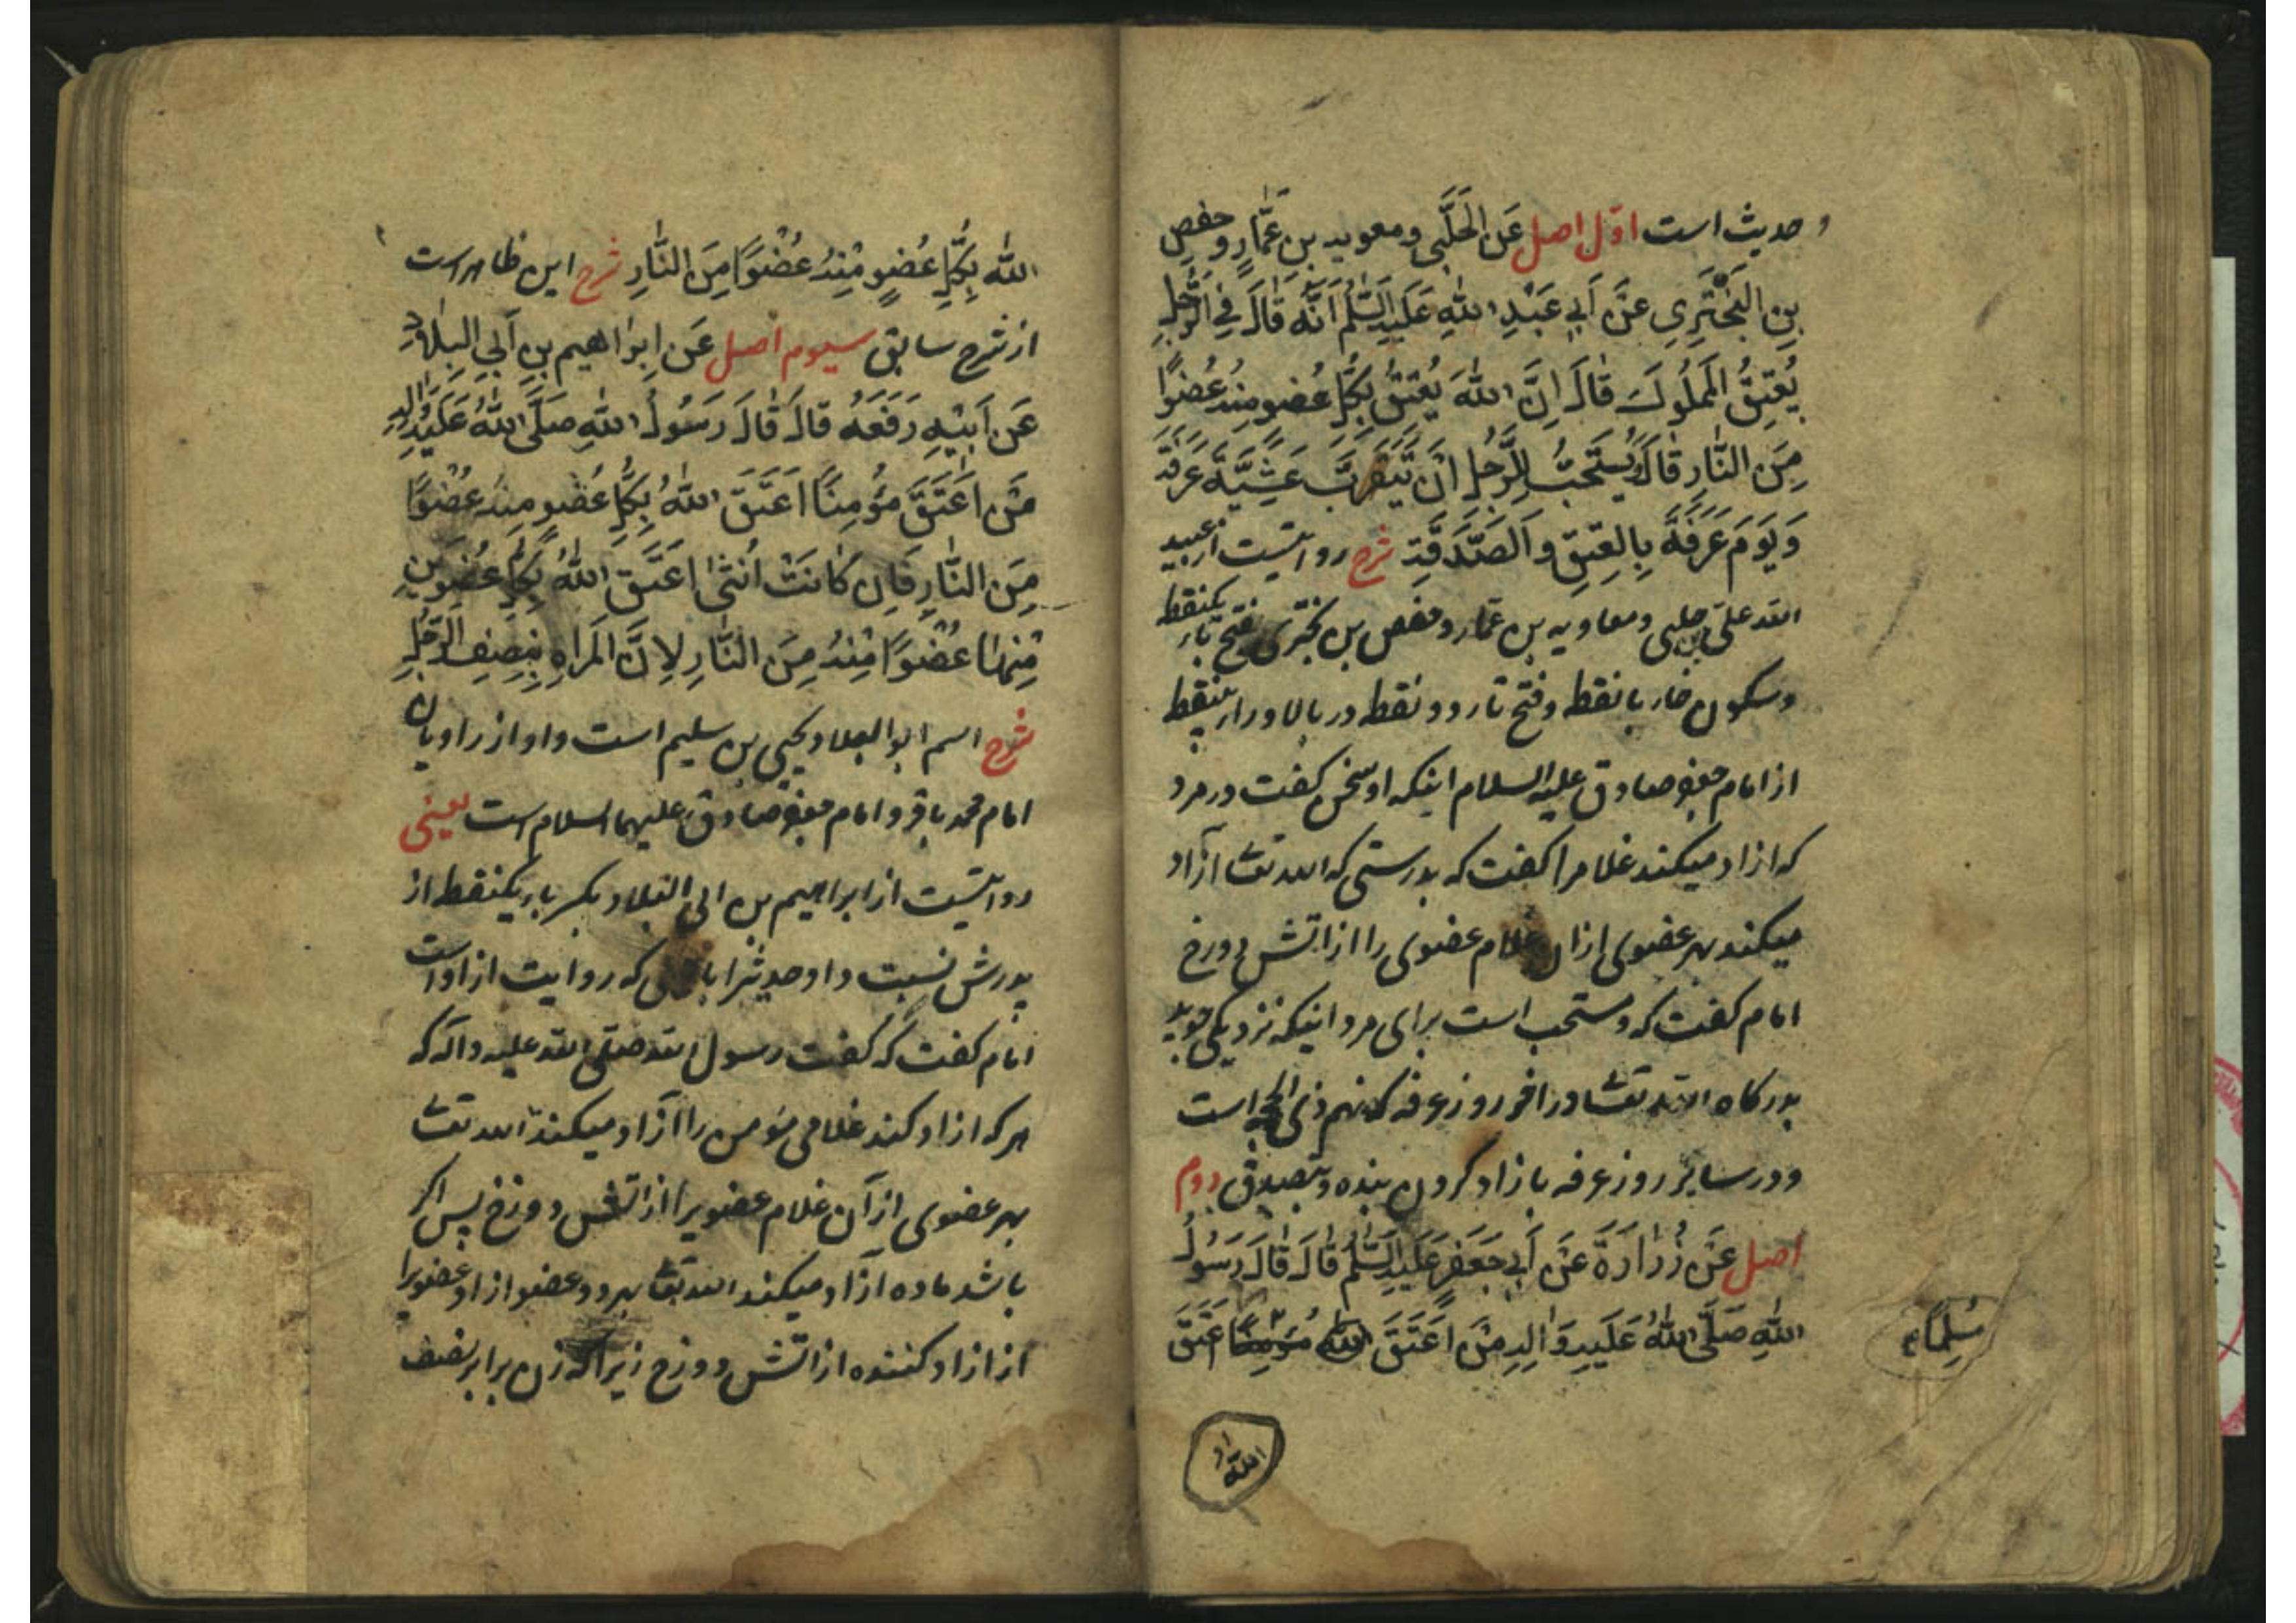 حدیث است اوّل اصل عَنِ الْحَلَبِّی و معویه بن عَمَّارٍ وَحفص
بنِ الْبَخْتَرِی عَنْ اَبِی عَبْدِ اللّٰهِ عَلَیْهِ السَّلٰمُ اَنَّهُ قٰالَ فِی الرَّجُلِ
یُعْتِقُ الْمَمْلُوكَ قٰالَ اِنَّ اللّٰهَ یُعْتِقُ بِکُلِّ عُضْوٍ مِنْهُ عُضْوًا
مِنَ النّٰارِ قٰالَ وَیُسْتَحَبُّ لِلرَّجُلِ اَنْ یَتَقَرَّبَ عَشِیَّةَ عَرَفَةَ
وَیَوْمَ عَرَفَةَ بِالْعِتْقِ وَالصَّدَقَةِ شرح روایتست از عبید
الله علیّ حلبی و معاویه بن عمّار و حفص بن بختری بفتح باء یکنقطه
و سکون خاء با نقطه و فتح تاء دو نقطه در بالا و راء بینقطه
از امام جعفر صادق علیه السلام اینکه او سخن کفت در مرد
که ازاد میکند غلام را کفت که بدرستی که الله تعا آزاد
میکند بهر عضوی ازان غلام عضوی را از اتش دوزخ
امام کفت که و مستحب است برای مرد اینکه نزدیکی جوید
بدرکاه الله تعا در اخر روز عرفه که نهم ذی الحجه است
و در سایر روز عرفه بازاد کردن بنده و بتصدق دوم
اصل عَنْ زُرٰارَةَ عَنْ اَبِی جَعْفَرٍ عَلَیْهِ السَّلٰمُ قٰالَ قٰالَ رَسُولُ
اللّٰهِ صَلَّی اللّٰهُ عَلَیْهِ وَاٰلِهِ مَنْ اَعْتَقَ الله مُؤْمِنًا اَعْتَقَ
مُسْلِمًا
الله
اللّٰهُ بِکُلِّ عُضْوٍ مِنْهُ عُضْوًا مِنَ النّٰارِ شرح این ظاهر است
از شرح سابق سیوم اصل عَن اِبرٰاهیم بن اَبِی الْبِلٰادِ
عَن اَبِیْهِ رَفَعَهُ قٰالَ قٰالَ رَسُولُ اللّٰهِ صَلَّی اللّٰهُ عَلَیْهِ وَاٰلِهِ
مَنْ اَعْتَقَ مُؤْمِنًا اَعْتَقَ اللّٰهُ بِکُلِّ عُضْوٍ مِنْهُ عُضْوًا
مِنَ النّٰارِ فَاِن کٰانَتْ اُنْثٰی اَعْتَقَ اللّٰهُ بِکُلِّ عُضْوَیْنِ
مِنْهٰا عُضْوًا مِنْهُ مِنَ النّٰارِ لِاَنَّ الْمَرْاَةَ بِنِصْفِ الرَّجُلِ
شرح اسم ابو البلاد یحیی بن سلیم است و او از راویان
امام محمد باقر و امام جعفر صادق علیهما السلام است یعنی
روایتست از ابراهیم بن ابی البلاد بکسر باء یکنقطه از
پدرش نسبت داد حدیث را که روایت از او است
امام کفت که کفت رسول الله صلی الله علیه و آله که
هر که ازاد کند غلامی مؤمن را آزاد میکند الله تعا
بهر عضوی از آن غلام عضویرا از اتش دوزخ پس اکر
باشد ماده ازاد میکند الله تعا بهر دو عضو از او عضویرا
از ازاد کننده از اتش دوزخ زیرا که زن برابر نصف